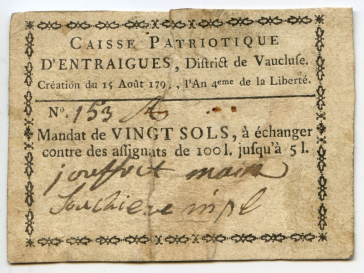 CAISSE PATRIOTIQUE
D'ENTRAIGUES, District de Vaucluse.
Création du 15 Août 179 , l'An 4eme de la Liberté.
No. 153 A
Mandat de VINGT SOLS, à échanger
contre des assignats de 100 l. jusqu'à 5 l.
jouffret maire